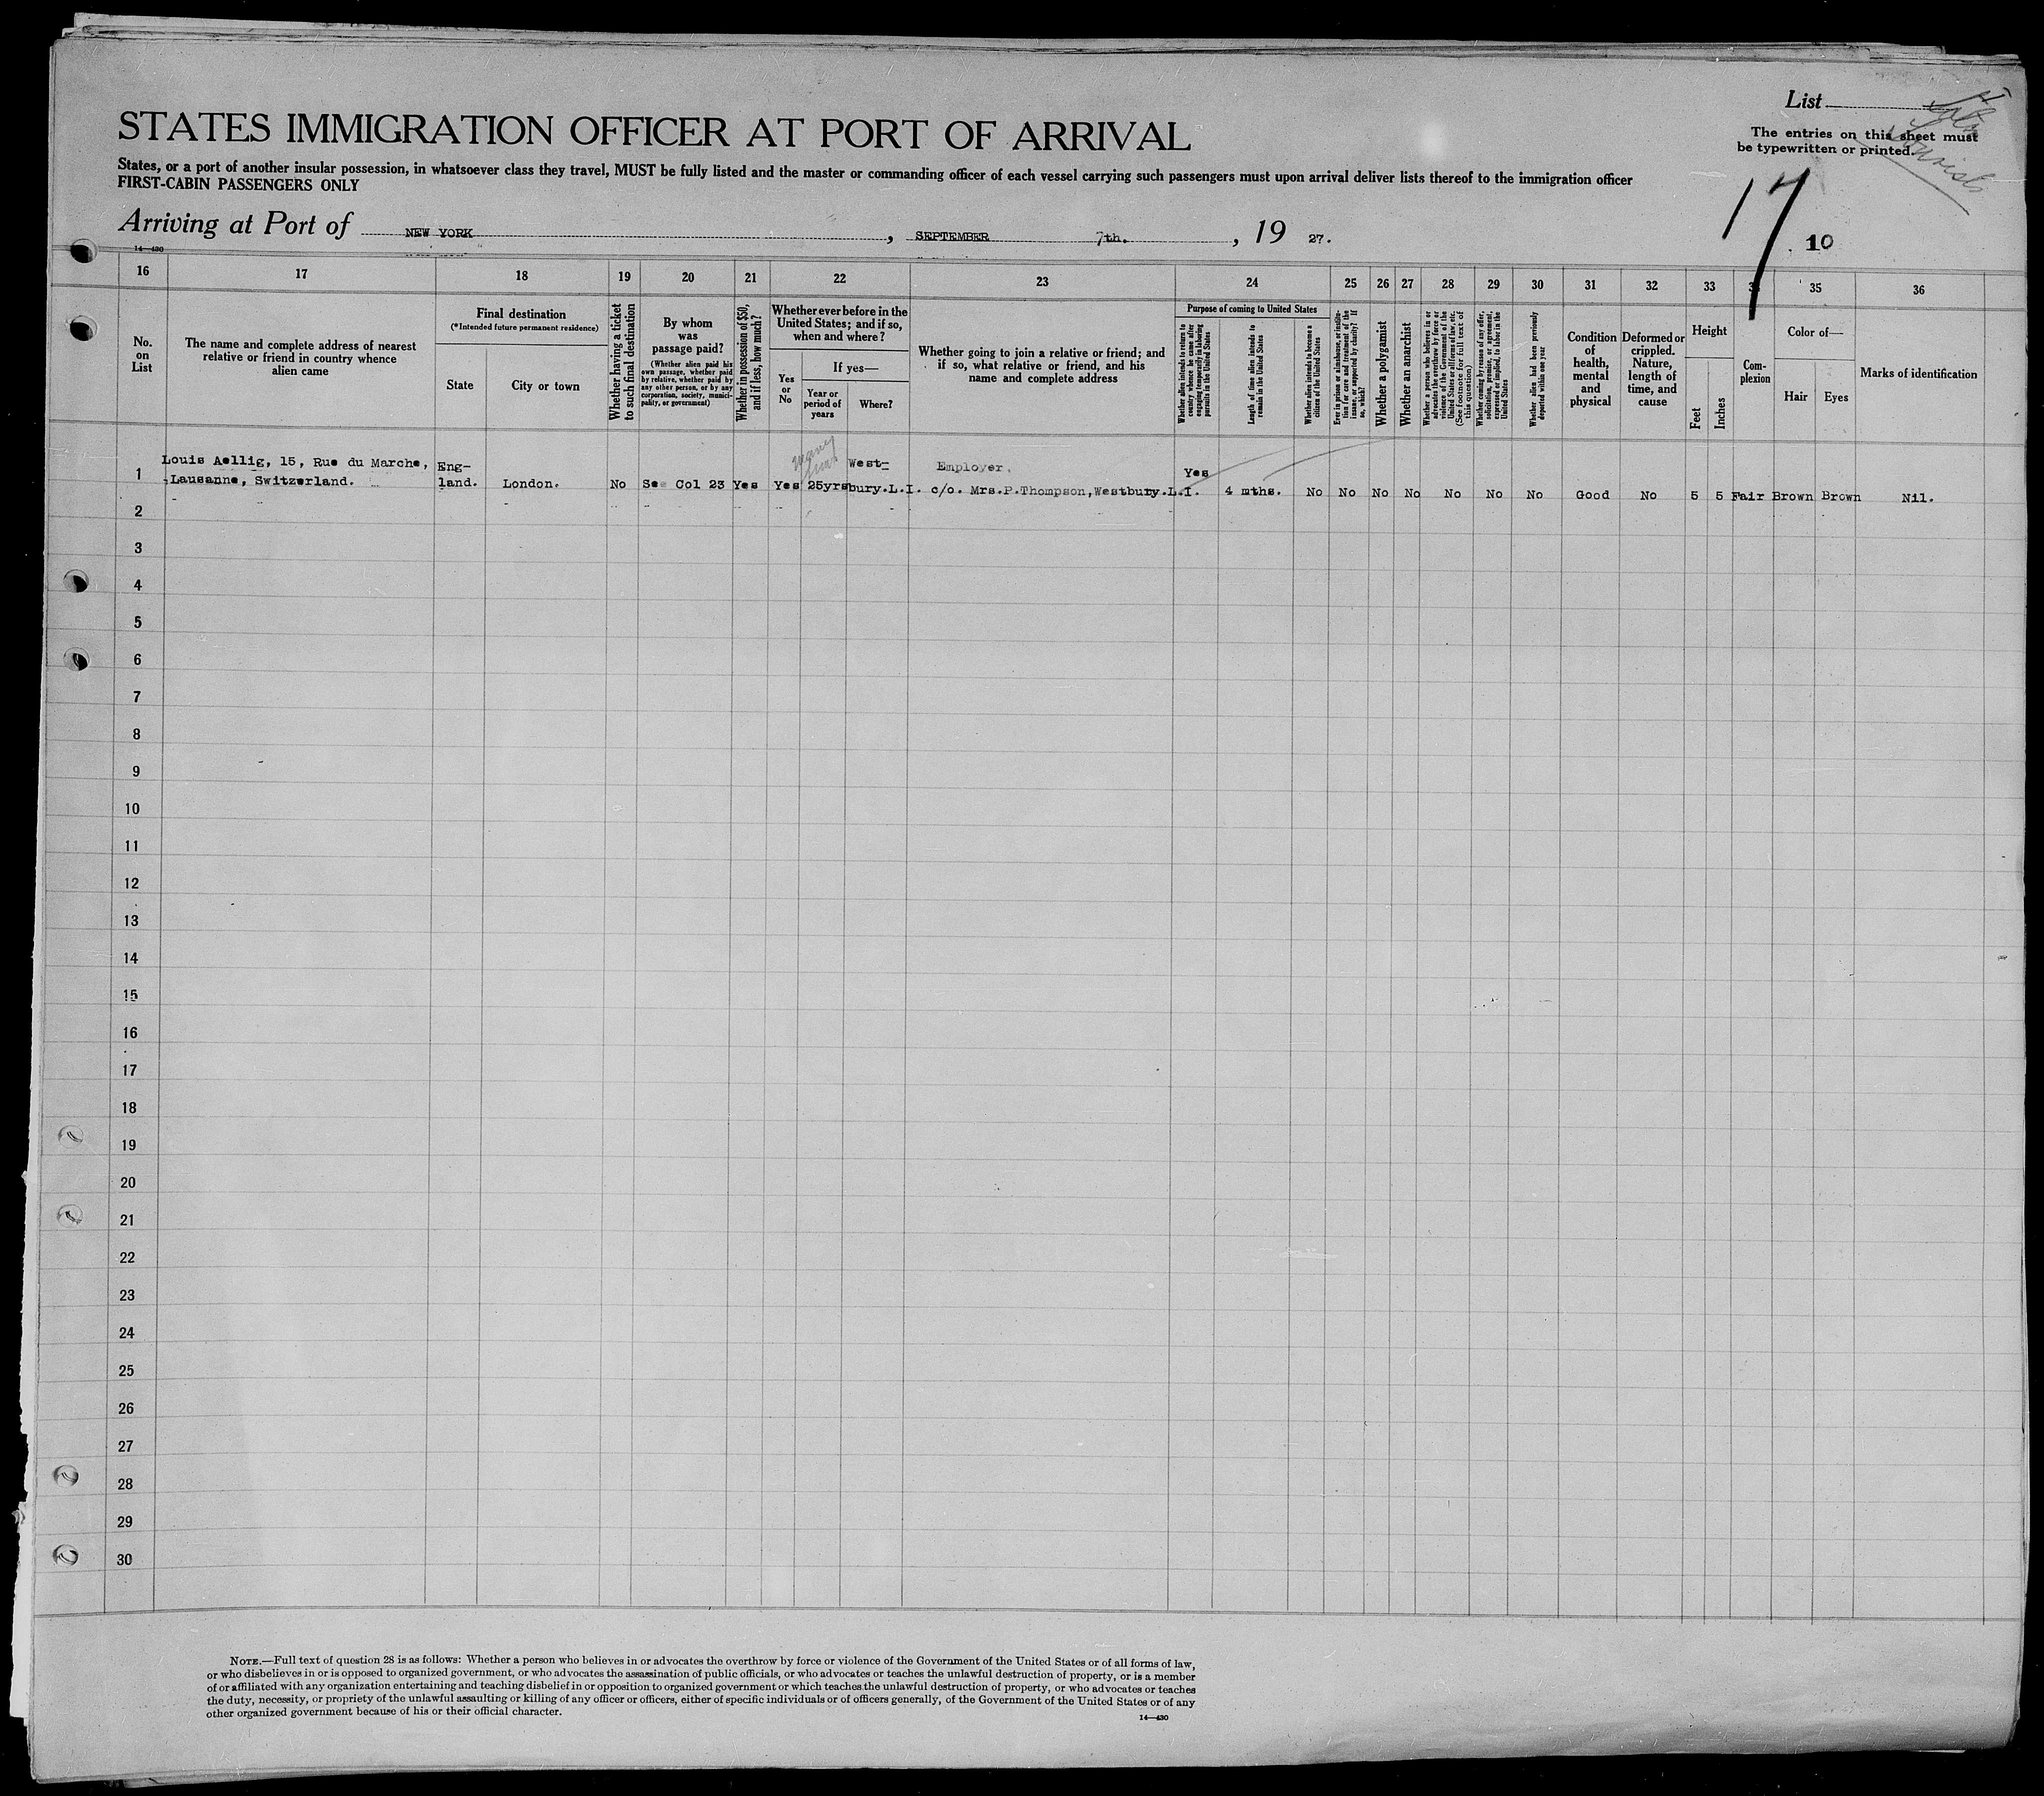 List
The entries on this sheet must
be typewritten or printed.
STATES IMMIGRATION OFFICER AT PORT OF ARRIVAL
States, or a port of another insular possession, in whatsoever class they travel, MUST be fully listed and the master or commanding officer of each vessel carrying such passengers must upon arrival deliver lists thereof to the immigration officer
FIRST-CABIN PASSENGERS ONLY
17
10
Arriving at Port of NEW YORK, SEPTEMBER 7th., 19 27.
14—430
16 17 18 19 20 21 22 23 24 25 26 27 28 29 30 31 32 33 35 36
No.
on
List
The name and complete address of nearest
relative or friend in country whence
alien came
Final destination
(*Intended future permanent residence)
State
City or town
Whether having a ticket
to such final destination
By whom
was
passage paid?
(Whether alien paid his
own passage, whether paid
by relative, whether paid by
any other person, or by any
corporation, society, munici-
pality, or government)
Whether in possession of $50,
and if less, how much?
Whether ever before in the
United States; and if so,
when and where?
Yes
or
No
If yes—
Year or
period of
years
Where?
Whether going to join a relative or friend; and
if so, what relative or friend, and his
name and complete address
Purpose of coming to United States
Whether alien intends to return to
country whence he came after
engaging temporarily in laboring
pursuits in the United States
Length of time alien intends to
remain in the United States
Whether alien intends to become a
citizen of the United States
Ever in prison or almshouse, or institu-
tion for care and treatment of the
insane, or supported by charity? If
so, which?
Whether a polygamist
Whether an anarchist
Whether a person who believes in or
advocates the overthrow by force or
violence of the Government of the
United States or all forms of law, etc.
(See footnote for full text of
this question)
Whether coming by reason of any offer,
solicitation, promise, or agreement,
expressed or implied, to labor in the
United States
Whether alien had been previously
deported within one year
Condition
of
health,
mental
and
physical
Deformed or
crippled.
Nature,
length of
time, and
cause
Height
Feet
Inches
Com-
plexion
Color of—
Hair
Eyes
Marks of identification
1 Louis Aellig, 15, Rue du Marche,
Lausanne, Switzerland.
Eng-
land.
London. No See Col 23 Yes Yes 25yrs
West-
bury.L.I.
Employer.
c/o. Mrs.P.Thompson,Westbury.L.I.
Yes
4 mths. No No No No No No No Good No 5 5 Fair Brown Brown Nil.
2
3
4
5
6
7
8
9
10
11
12
13
14
15
16
17
18
19
20
21
22
23
24
25
26
27
28
29
30
NOTE.—Full text of question 28 is as follows: Whether a person who believes in or advocates the overthrow by force or violence of the Government of the United States or of all forms of law,
or who disbelieves in or is opposed to organized government, or who advocates the assassination of public officials, or who advocates or teaches the unlawful destruction of property, or is a member
of or affiliated with any organization entertaining and teaching disbelief in or opposition to organized government or which teaches the unlawful destruction of property, or who advocates or teaches
the duty, necessity, or propriety of the unlawful assaulting or killing of any officer or officers, either of specific individuals or of officers generally, of the Government of the United States or of any
other organized government because of his or their official character.
14—430